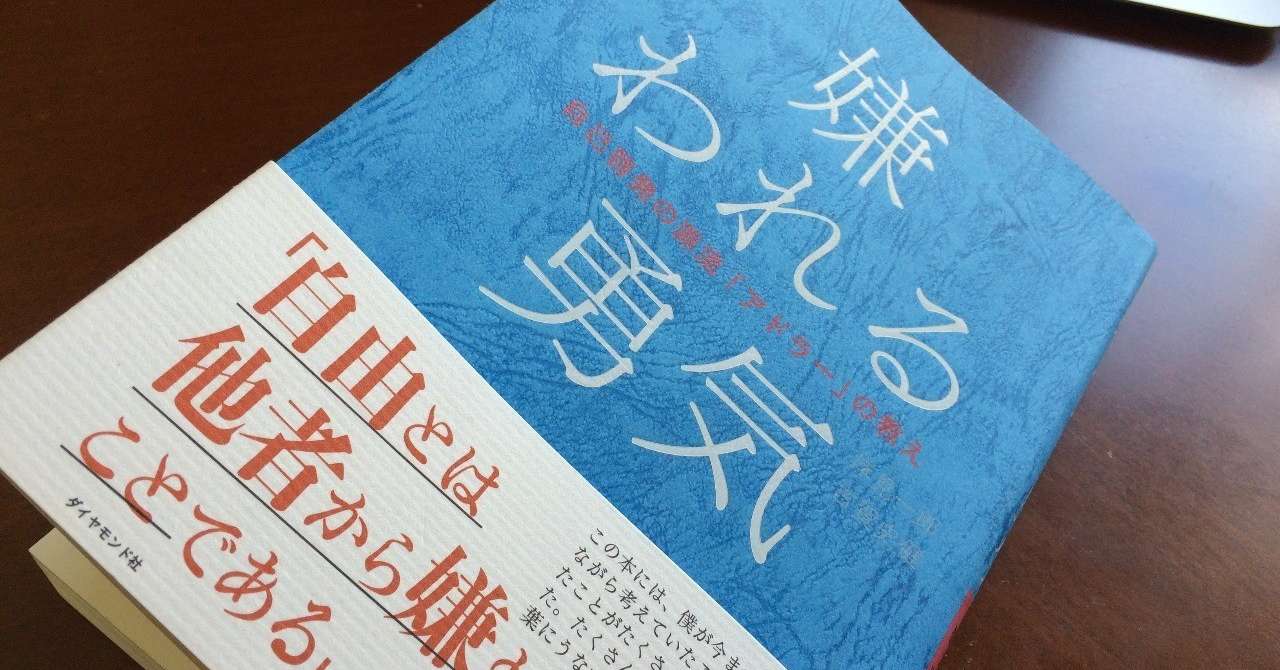 嫌われる勇気
自己啓発の源流「アドラー」の教え
岸見一郎
古賀史健
「自由とは
他者から嫌
ことである」
ダイヤモンド社
この本には、僕が今ま
ながら考えていた
たことがたくさ
た。たくさん
葉にうな